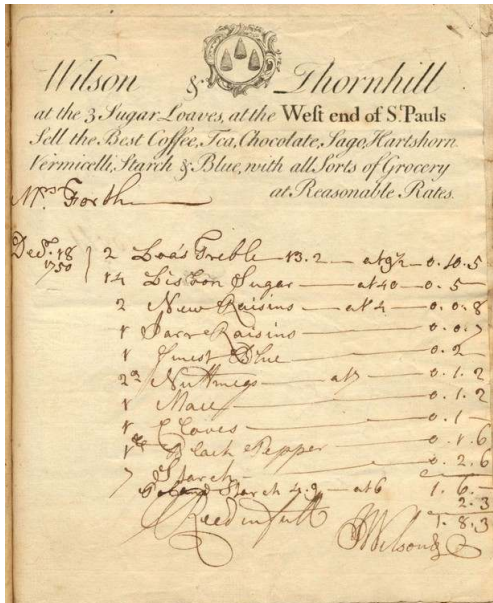 Wilson & Thornhill
at the 3 Sugar Loaves, at the West end of St. Pauls
Sell the Best Coffee, Tea, Chocolate, Sago, Hartshorn
Vermicelli, Starch & Blue, with all Sorts of Grocery
at Reasonable Rates.
Mrs Forth
Decr. 18 2 Loa's Treble 13.2 at 9½ 0.10.5
1750 14 Lisbon Sugar at 40 0.5
2 New Raisins at 4 0.0.8
1 Jarr Raisins 0.0.7
1 finest Blue 0.2
Nuttmegs at 7 0.1.2
1 Mace 0.1.2
1 Cloves 0.1
1 Black Pepper 0.1.6
7 Starch 0.2.6
Starch 4.9 at 6 1.6.
2.3
Recd in full 1.8.3
Wilson